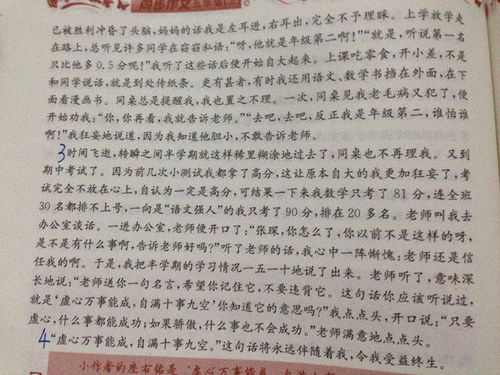 已被胜利冲昏了头脑,妈妈的话我是左耳进,右耳出,完全不予理睬。上学放学走
在路上,总听见许多同学在窃窃私语:“呀,他就是年级第二啊!”“就是,听说第一名
只比他多0.5分呢!”我听了这些话后便开始自大起来。上课吃零食,开小差,不是
和同学说话,就是到处传纸条。更有甚者,有时我还用语文、数学书挡在外面,在下
面看漫画书。同桌总是提醒我,我也置之不理。一次,同桌见我老毛病又犯了,便
开始劝我:“你,你再看,我就告诉老师。”“去吧,去吧,反正我是年级第二,谁怕谁
啊!”我狂妄地说道,因为我知道他胆小,不敢告诉老师。
3时间飞逝,转瞬之间半学期就这样稀里糊涂地过去了,同桌也不再理我。又到
期中考试了。因为前几次小测试我都拿了高分,这让原本自大的我更加狂妄了,考
试完全不放在心上,自认为一定是高分,可结果一下来我数学只考了81分,连全班
30名都排不上号,一向是“语文强人”的我只考了90分,排在20多名。老师叫我去
办公室谈话。一进办公室,老师便开口了:“张琛,你怎么了,你以前不是这样的呀,
是不是有什么事啊,告诉老师好吗?”听了老师的话,我心中一阵惭愧:老师还是信
任我的啊。于是,我把半学期的学习情况一五一十地说了出来。老师听了,意味深
长地说:“老师送你一句名言,希望你记住它,不要违背它。这句话你应该听说过,
就是‘虚心万事能成,自满十事九空’你知道它的意思吗?”我点点头,开口说:“只要
虚心,什么事都能成功;如果骄傲,什么事也不会成功。”老师满意地点点头。
4“虚心万事能成,自满十事九空。”这句话将永远伴随着我,令我受益终生。
小作者的座右铭是“虚心万事能成,自满